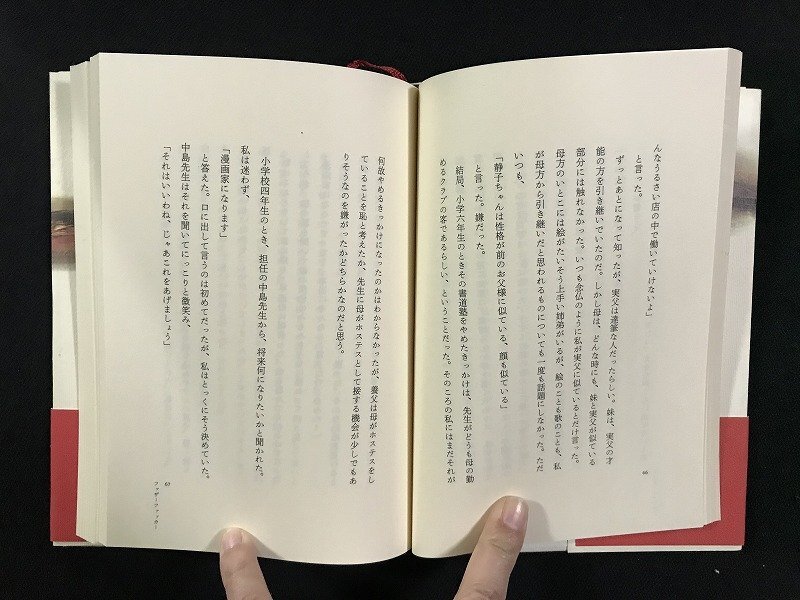 んなうるさい店の中で働いていけないよ」
と言った。
ずっとあとになって知ったが、実父は達筆な人だったらしい。妹は、実父の才
能の方を引き継いでいたのだ。しかし母は、どんな時にも、妹と実父が似ている
部分には触れなかった。いつも念仏のように私が実父に似ているとだけ言った。
母方のいとこには絵がたいそう上手い姉弟がいるが、絵のことも歌のことも、私
が母方から引き継いだと思われるものについても一度も話題にしなかった。ただ
いつも、
「静子ちゃんは性格が前のお父様に似ている、顔も似ている」
と言った。嫌だった。
結局、小学六年生のときその書道塾をやめたきっかけは、先生がどうも母の勤
めるクラブの客であるらしい、ということだった。そのころの私にはまだそれが
66
何故やめるきっかけになったのかはわからなかったが、養父は母がホステスをし
ていることを恥と考えたか、先生に母がホステスとして接する機会が少しでもあ
りそうなのを嫌がったかどちらかなのだと思う。
小学校四年生のとき、担任の中島先生から、将来何になりたいかと聞かれた。
私は迷わず、
「漫画家になります」
と答えた。口に出して言うのは初めてだったが、私はとっくにそう決めていた。
中島先生はそれを聞いてにっこりと微笑み、
「それはいいわね、じゃあこれをあげましょう」
67
ファザーファッカー